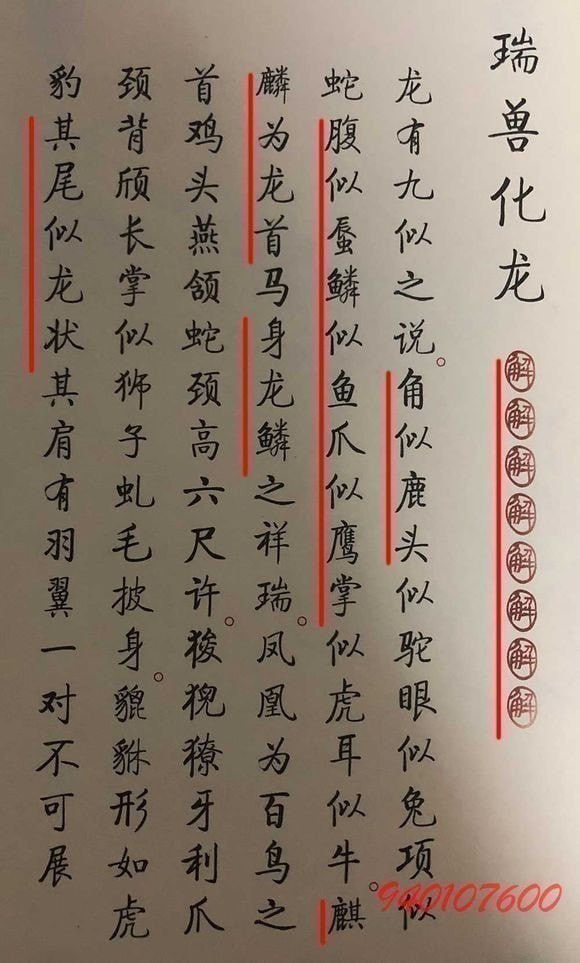 瑞兽化龙
解解解解解解解解
龙有九似之说。角似鹿头似驼眼似兔项似
蛇腹似蜃鳞似鱼爪似鹰掌似虎耳似牛。麒
麟为龙首马身龙鳞之祥瑞。凤凰为百鸟之
首鸡头燕颔蛇颈高六尺许。狻猊獠牙利爪
颈背颀长掌似狮子虬毛披身。貔貅形如虎
豹其尾似龙状其肩有羽翼一对不可展
940107600